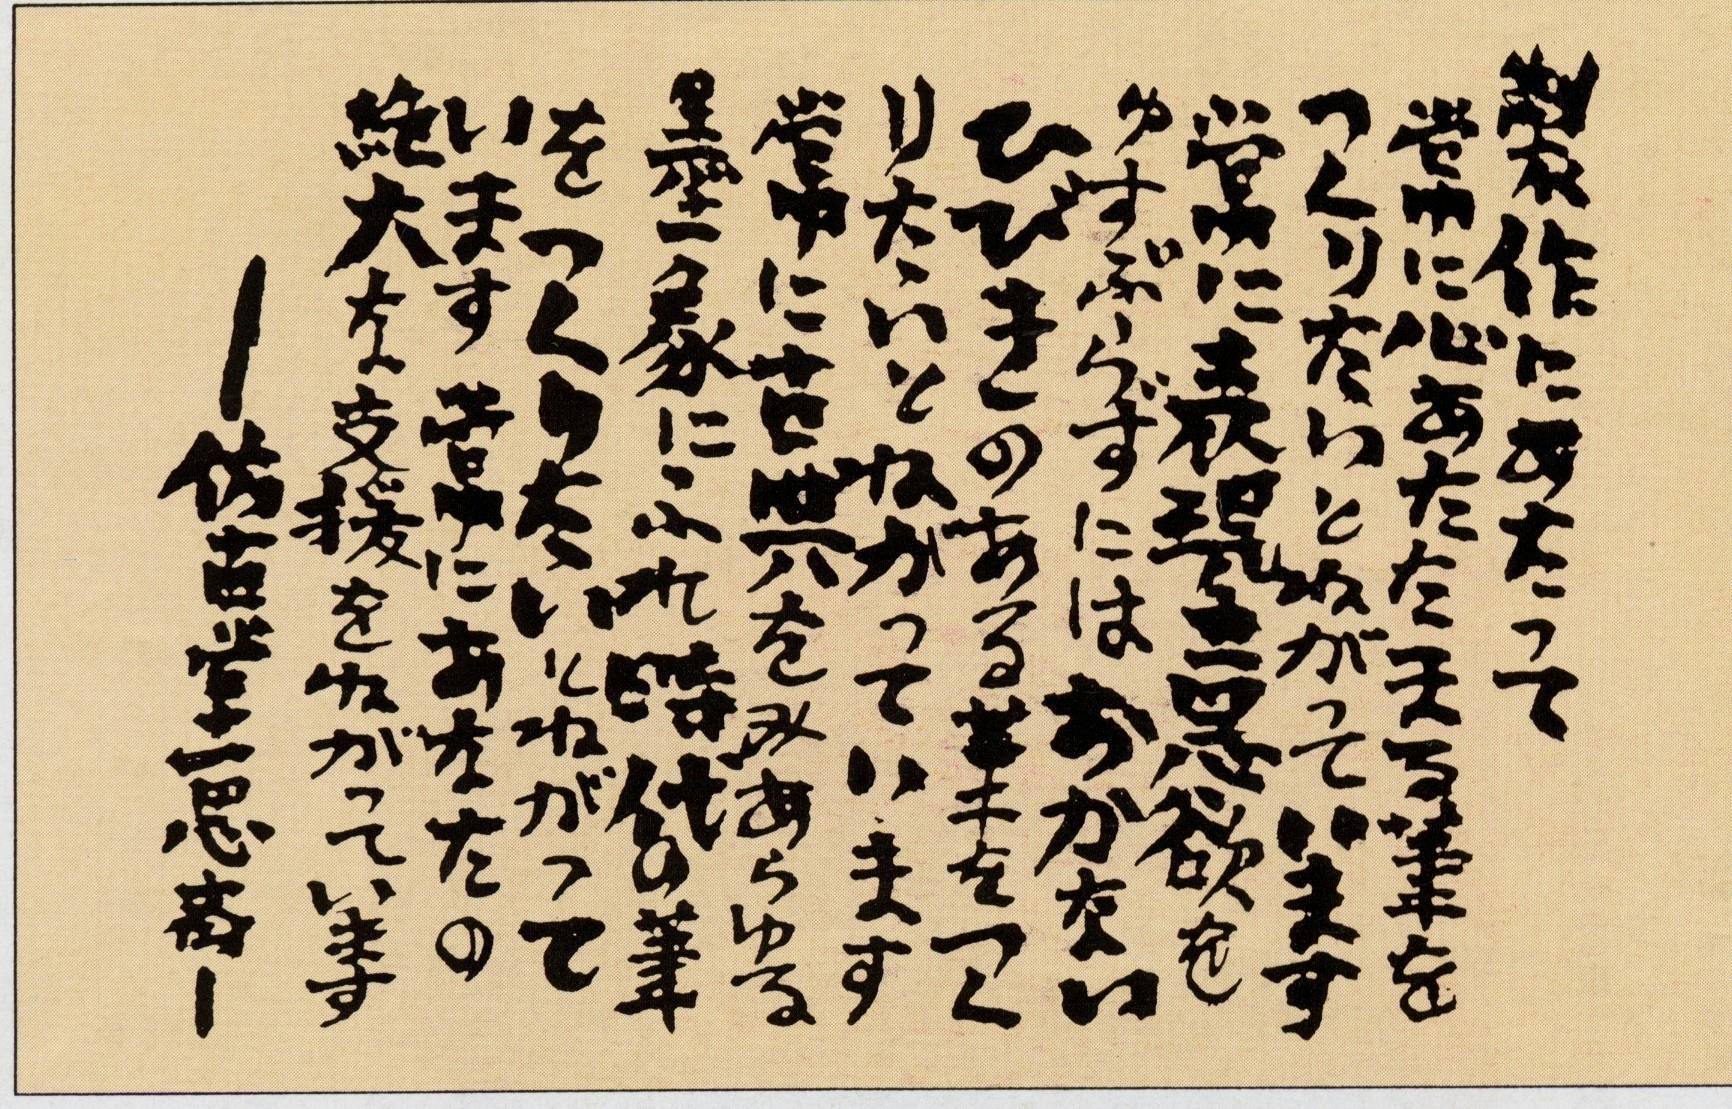 製作にあたって
常に心あたたまる筆を
つくりたいとねがっています
常に表現意欲を
ゆすぶらずにはおかない
ひびきのある筆をつく
りたいとねがっています
常に古典をみあらゆる
墨象にふれ時代の筆
をつくりたいとねがって
います 常にあなたの
絶大な支援をねがっています
―仿古堂一思斎―